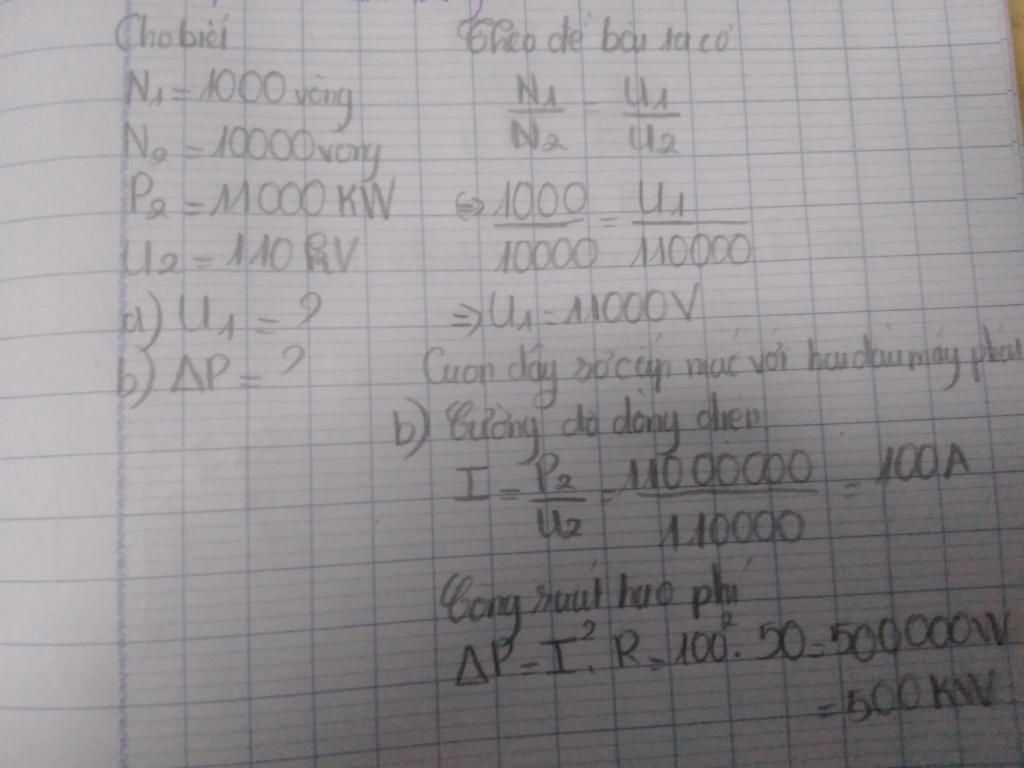 Cho biết
N₁ = 1000 vòng
N₂ = 10000 vòng
P₂ = 11000 KW
U₂ = 110 KV
a) U₁ = ?
b) ΔP = ?
Theo đề bài ta có
N₁/N₂ = U₁/U₂
⇔ 1000/10000 = U₁/110000
⇒ U₁ = 11000V
Cuộn dây sơ cấp mắc với hai đầu máy phát
b) Cường độ dòng điện
I = P₂/U₂ = 11000000/110000 = 100A
Công suất hao phí
ΔP = I². R = 100². 50 = 500 000W
= 500 KW